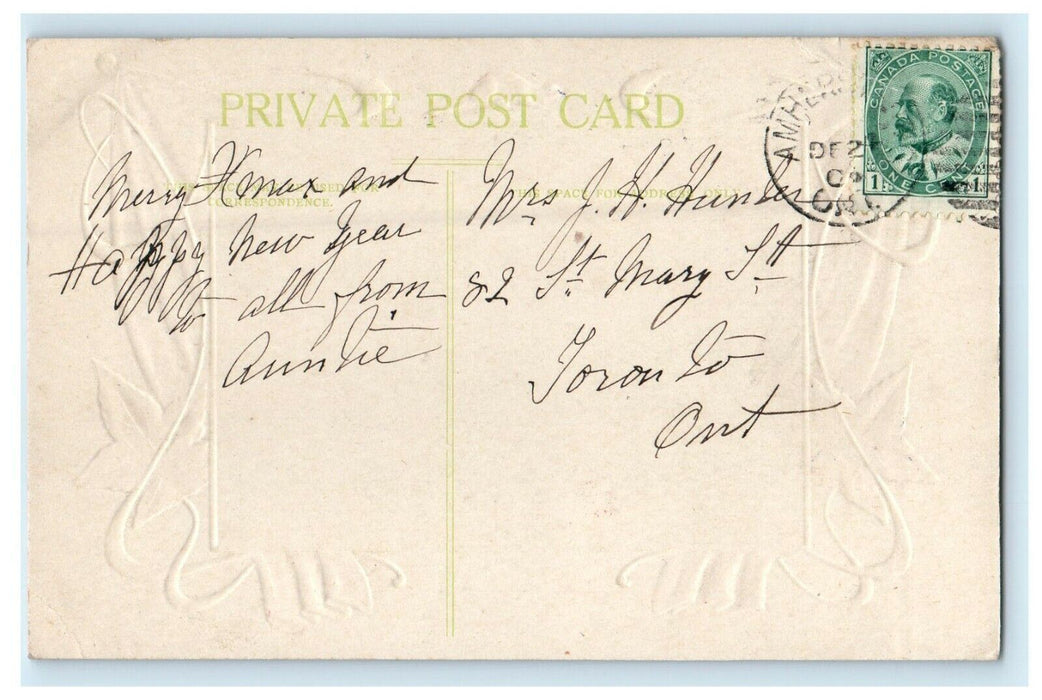 PRIVATE POST CARD
Merry Xmax and
Happy New Year
to all from
Auntie
CORRESPONDENCE.
THIS SPACE FOR ADDRESS ONLY
Mrs J. H. Hunter
82 St. Mary St
Toronto
Ont
CANADA POSTAGE
1
ONE CENT
1
DE 2
ONT